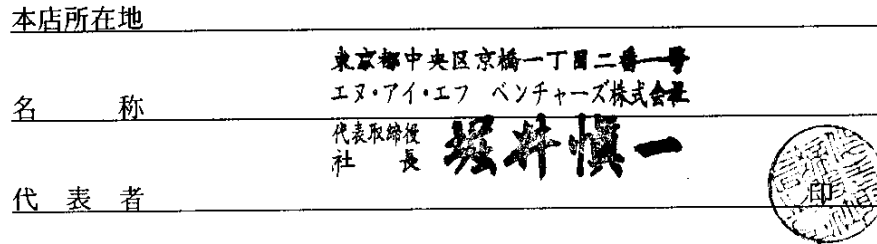 本店所在地
東京都中央区京橋一丁目二番一号
名 称
エヌ・アイ・エフ ベンチャーズ株式会社
代表取締役
社 長 堀井愼一
代 表 者
印